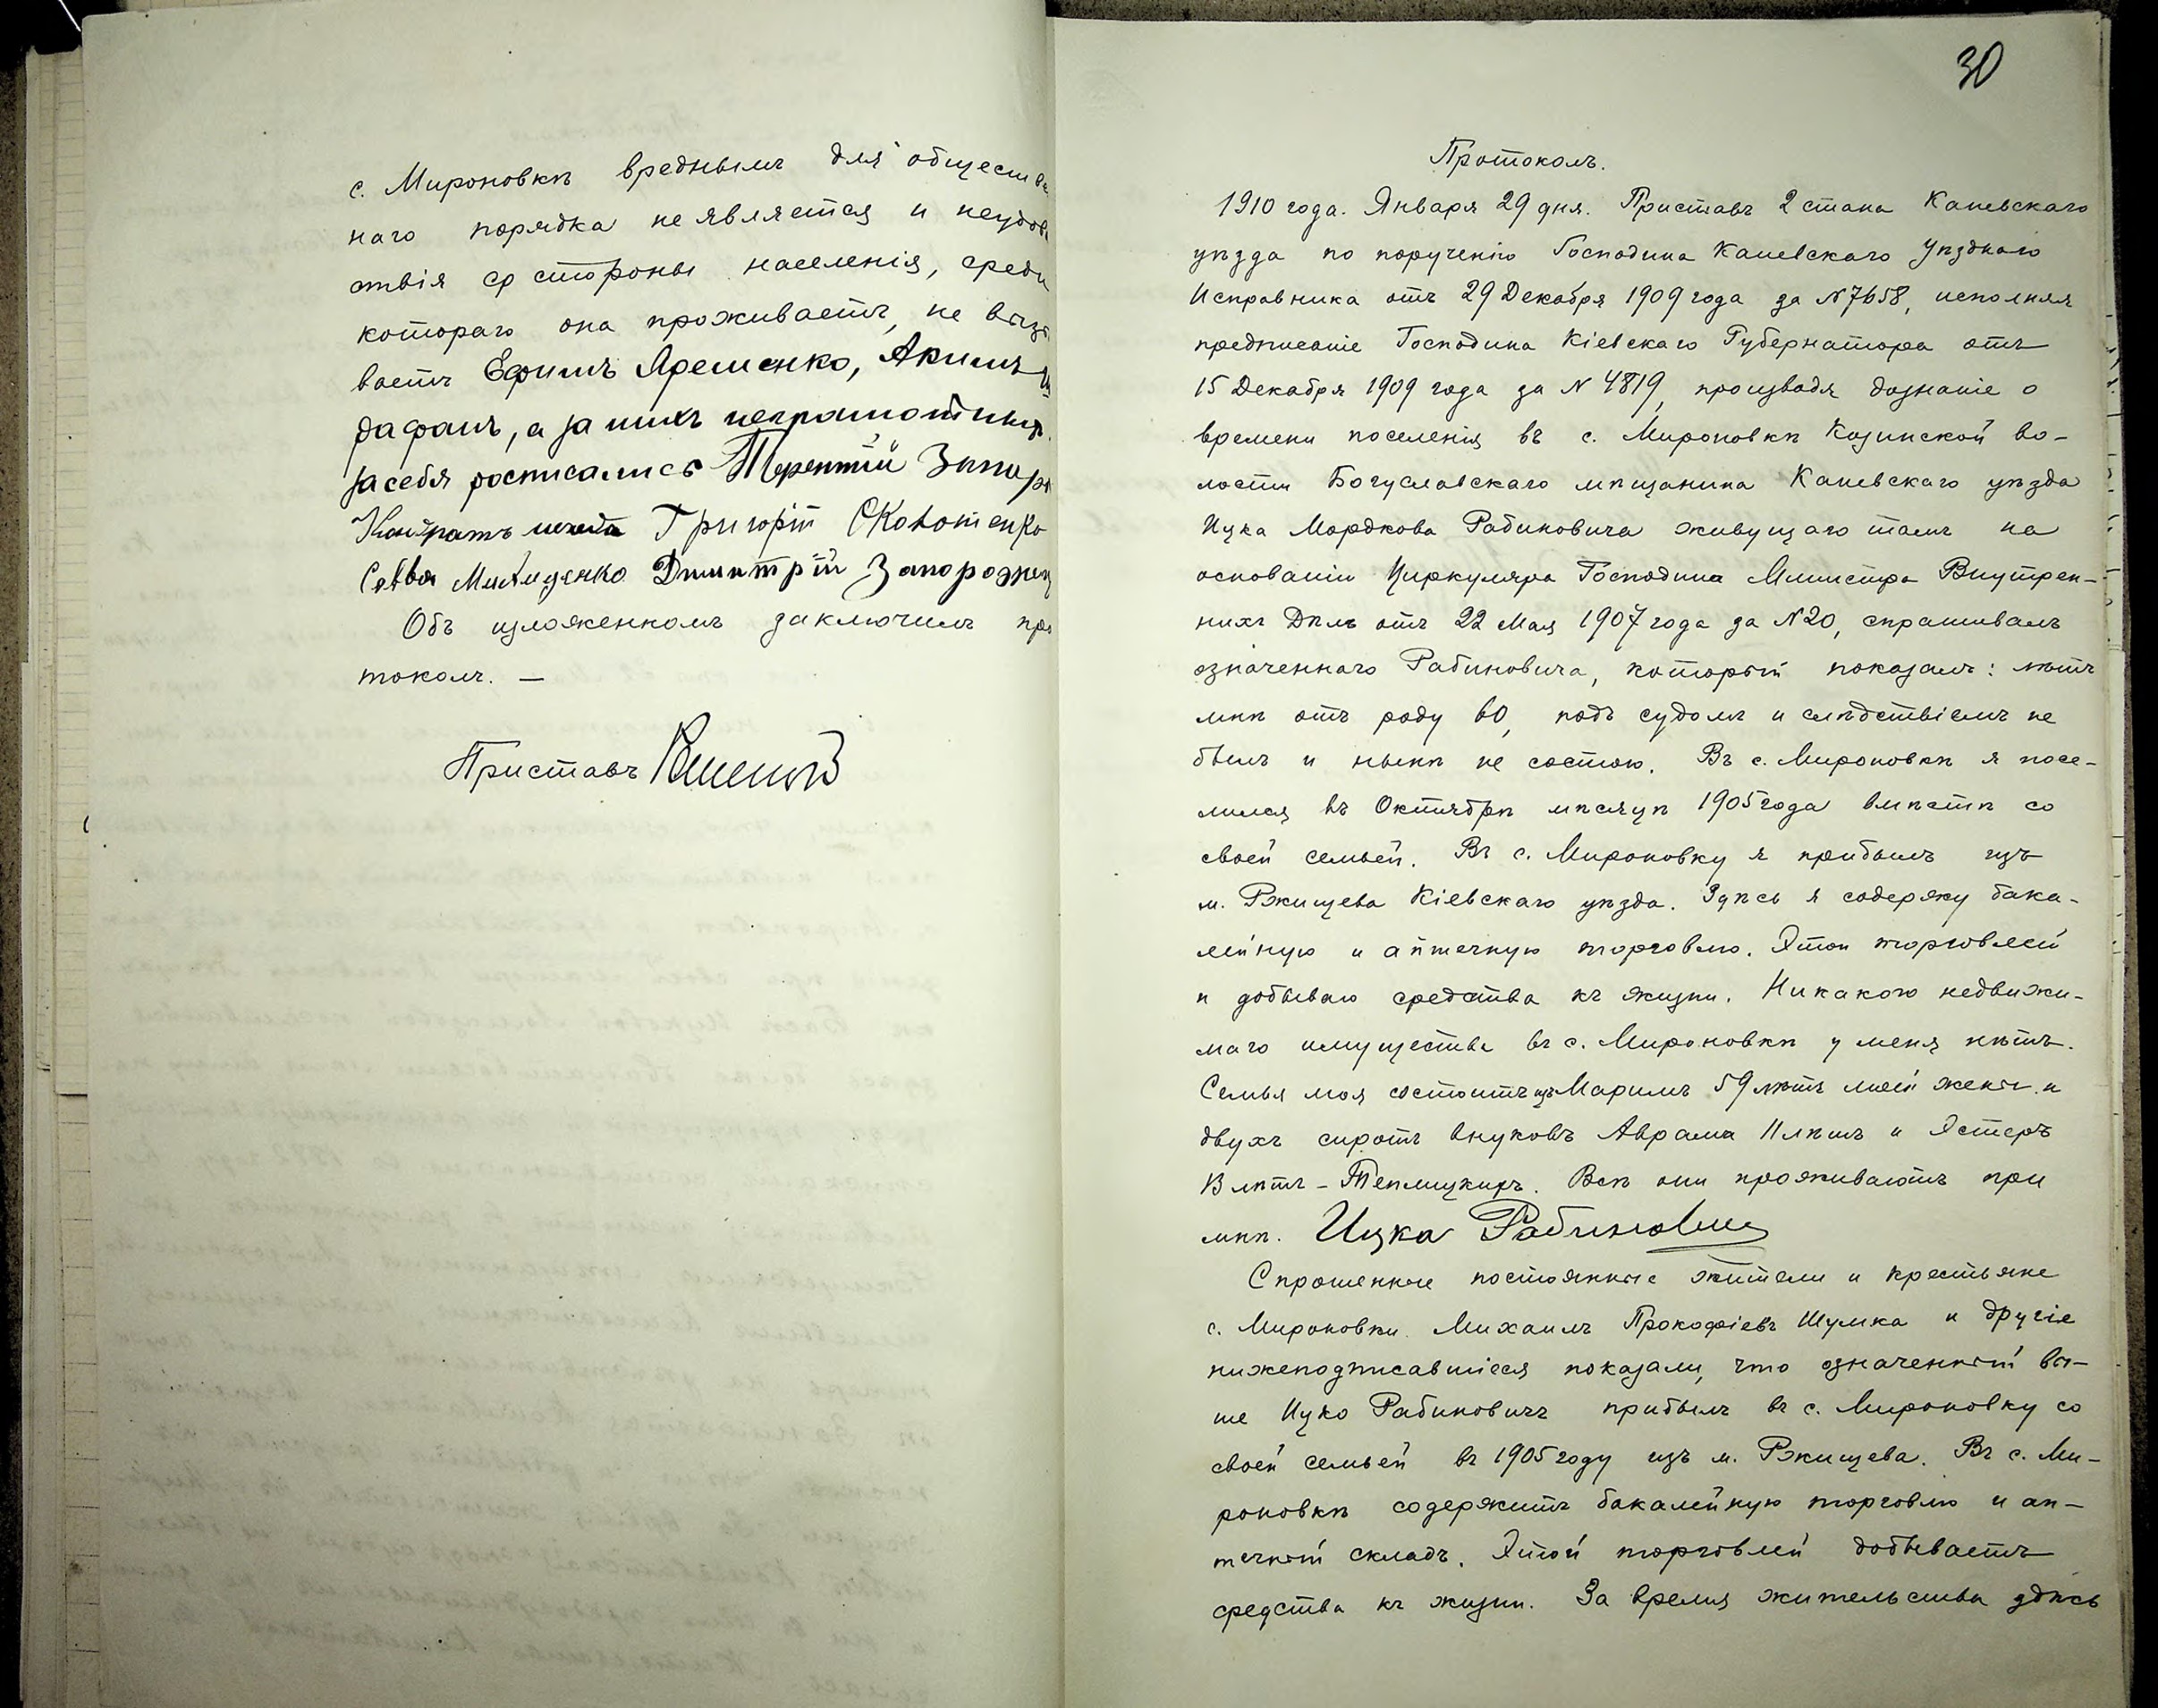 с. Мироновкѣ вреднымъ для обществе
наго порядка не является и неудов
ствія со стороны населенія, среди
котораго она проживаетъ, не вызы
ваетъ Ефимъ Яременко, Акимъ
дафанъ, а за нихъ неграмотныхъ
за себя росписались Терентій Запор
Кондратъ Григорій Сколотенко
Савва Дмитрій Запорожец
Объ изложенномъ заключилъ про
токолъ. —
Приставъ
30
Протоколъ.
1910 года. Января 29 дня. Приставъ 2 стана Каневскаго
уѣзда по порученію Господина Каневскаго Уѣзднаго
Исправника отъ 29 Декабря 1909 года за № 7658, исполняя
предписаніе Господина Кіевскаго Губернатора отъ
15 Декабря 1909 года за № 4819, производя дознаніе о
времени поселенія въ с. Мироновкѣ Козинской во-
лости Богуславскаго мѣщанина Каневскаго уѣзда
Ицка Мордкова Рабиновича живущаго тамъ на
основаніи Циркуляра Господина Министра Внутрен-
нихъ Дѣлъ отъ 22 Мая 1907 года за № 20, спрашивалъ
означеннаго Рабиновича, который показалъ: лѣтъ
мнѣ отъ роду 60, подъ судомъ и слѣдствіемъ не
былъ и нынѣ не состою. Въ с. Мироновкѣ я посе-
лился въ Октябрѣ мѣсяцѣ 1905 года вмѣстѣ со
своей семьей. Въ с. Мироновку я прибылъ изъ
м. Ржищева Кіевскаго уѣзда. Здѣсь я содержу бака-
лейную и аптечную торговлю. Этой торговлей
и добываю средства къ жизни. Никакого недвижи-
маго имущества въ с. Мироновкѣ у меня нѣтъ.
Семья моя состоитъ изъ Маримъ 59 лѣтъ моей жены и
двухъ сиротъ внуковъ Аврама 11 лѣтъ и Эстеръ
13 лѣтъ - Теплицкихъ. Всѣ они проживаютъ при
мнѣ. Ицка Рабиновичъ
Спрошенные постоянные жители и крестьяне
с. Мироновки Михаилъ Прокофіевъ Шулика и другіе
нижеподписавшіеся показали, что означенный вы-
ше Ицко Рабиновичъ прибылъ въ с. Мироновку со
своей семьей въ 1905 году изъ м. Ржищева. Въ с. Ми-
роновкѣ содержитъ бакалейную торговлю и ап-
течный складъ. Этой торговлей добываетъ
средства къ жизни. За время жительства здѣсь